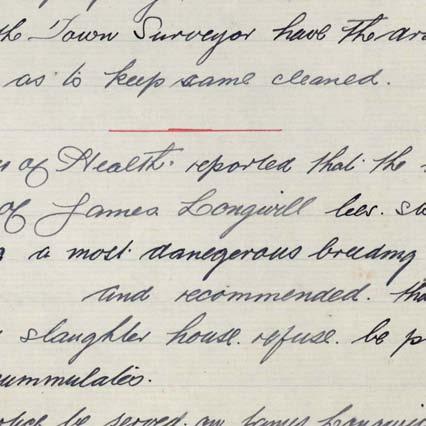 the Town Surveyor have the
as to keep same cleaned.
of Health. reported that the
of James Longwill lees.
a most danegerous breeding
and recommended. tha
slaughter house. refuse. be p
cummulates.
be served. on James